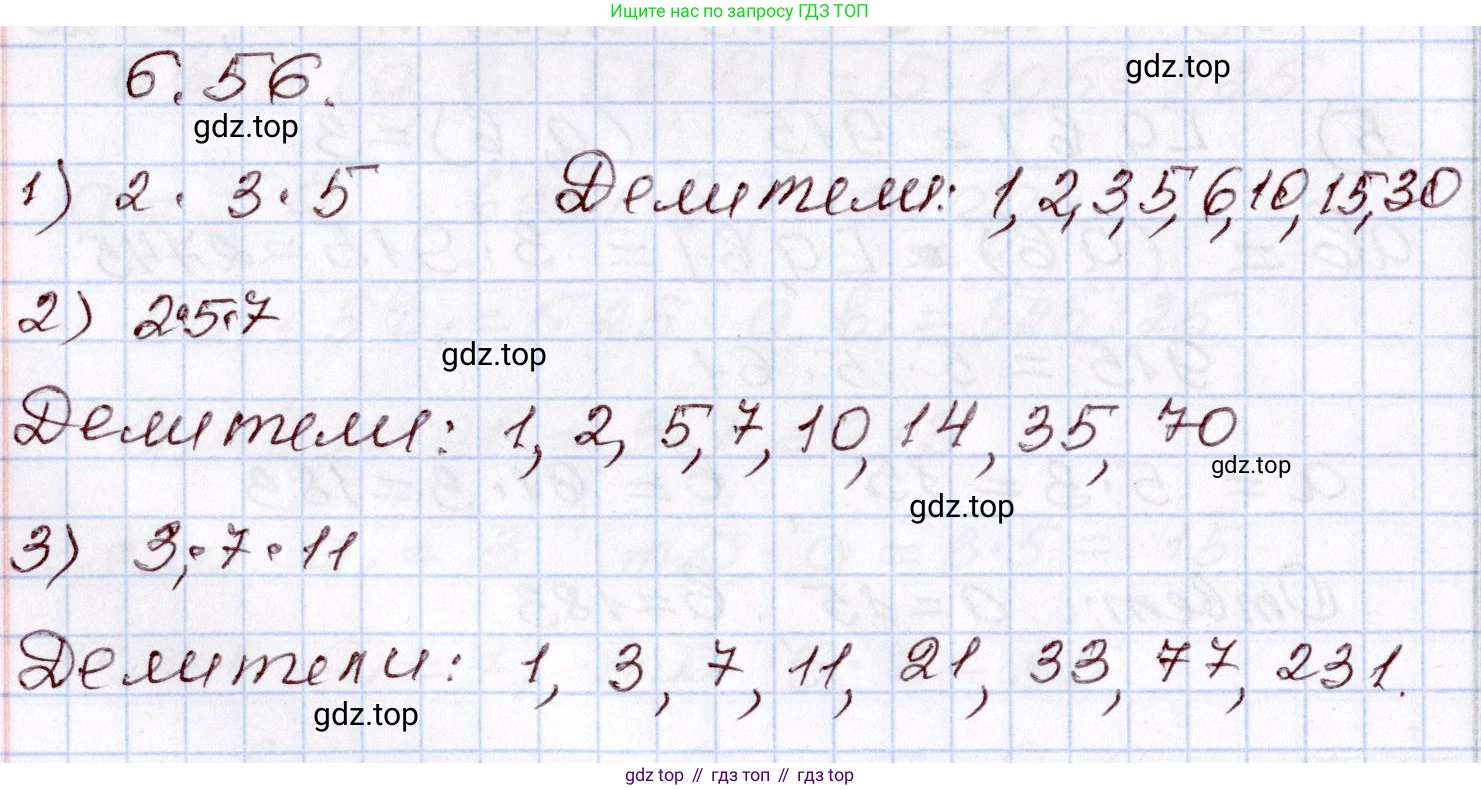 Ищите нас по запросу ГДЗ ТОП
6.56.
gdz.top
gdz.top
1) 2 · 3 · 5 Делители: 1, 2, 3, 5, 6, 10, 15, 30
2) 2·5·7
gdz.top
Делители: 1, 2, 5, 7, 10, 14, 35, 70
gdz.top
gdz.top
3) 3 · 7 · 11
Делители: 1, 3, 7, 11, 21, 33, 77, 231.
gdz.top
gdz top // гдз топ // гдз top